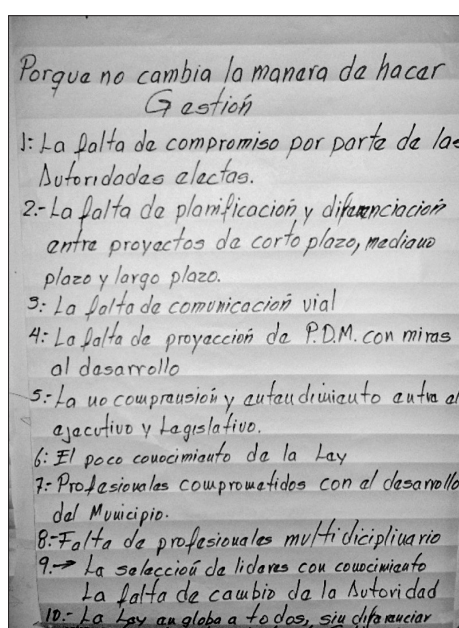 Porque no cambia la manera de hacer
Gestión
1: La falta de compromiso por parte de las
Autoridades electas.
2.- La falta de planificación y diferenciación
entre proyectos de corto plazo, mediano
plazo y largo plazo.
3: La falta de comunicación vial
4: La falta de proyección de P.D.M. con miras
al desarrollo
5.- La no comprensión y entendimiento entre el
ejecutivo y Legislativo.
6: El poco conocimiento de la Ley
7.- Profesionales comprometidos con el desarrollo
del Municipio.
8.- Falta de profesionales multidiciplinario
9.→ La selección de lideres con conocimiento
La falta de cambio de la Autoridad
10.- La Ley an globa a todos, sin diferenciar